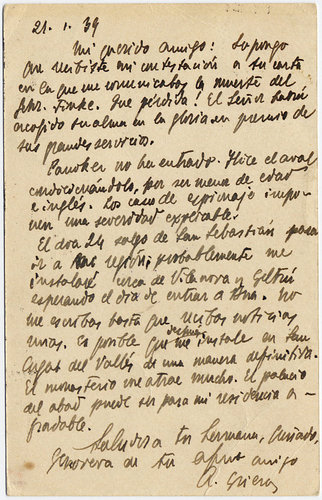 21. 1. 39
Mi querido amigo: Supongo
que recibiste mi contestación a su carta
en la que me comunicabas la muerte del
Sr. Finke. Que pérdida! El Señor habrá
acogido su alma en la gloria en premio de
sus grandes servicios.
no ha entrado. Hice el aval
condicionándolo, por ser menor de edad
e inglés. Los casos de espionaje impo-
nen una severidad explicable.
El dia 24 salgo de San Sebastián para
ir a región, probablemente me
instalaré cerca de Vilanova y Geltrú
esperando el dia de entrar a No
me escribas hasta que recibas noticias
mias. Es posible que después me instale en San
Cugat del Vallés de una manera definitiva.
El monasterio me atrae mucho. El palacio
del abad puede ser para mi residencia a-
gradable.
Saluda a tu hermana, cuñado,
de tu afmo amigo